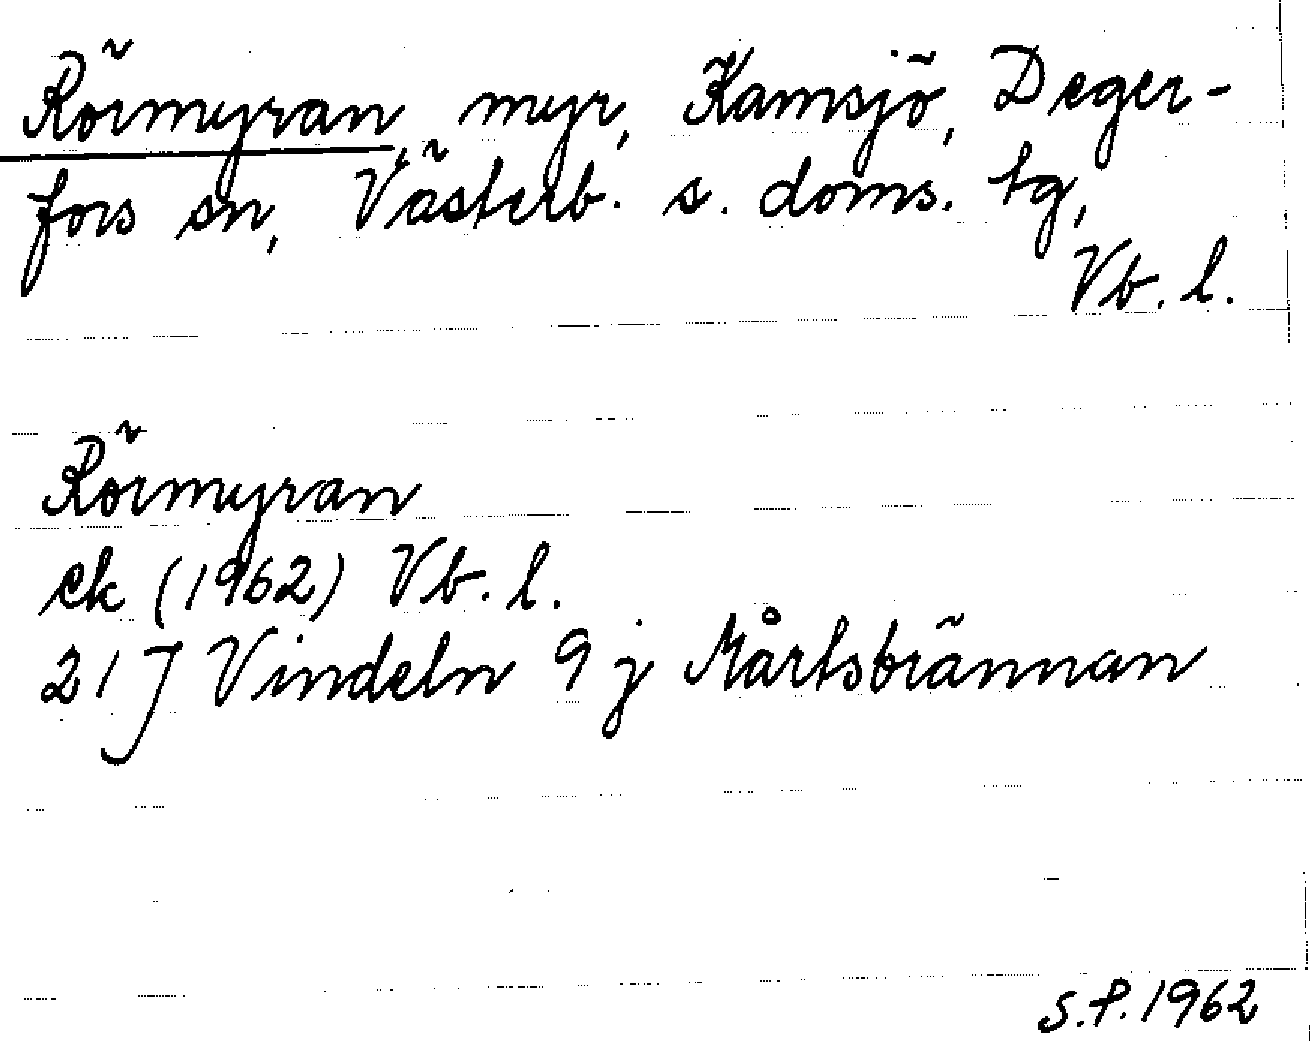 Rörmyran, myr, Kamsjö, Deger-
fors sn, Västerb. s. doms. tg,
Vb. l.
Rörmyran
ek (1962) Vb. l.
21 J Vindeln 9 j Mårtsbrännan
S.P. 1962